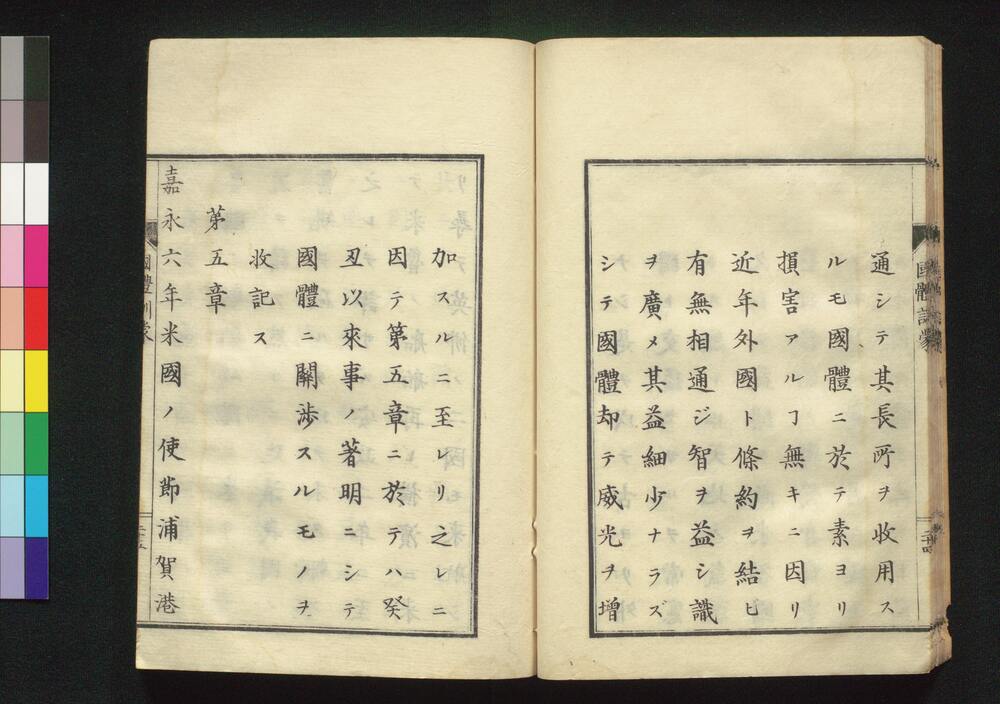 通シテ其長所ヲ收用ス
ルモ國體ニ於テ素ヨリ
損害アルヿ無キニ因リ
近年外國ト條約ヲ結ヒ
有無相通ジ智ヲ益シ識
ヲ廣メ其益細少ナラズ
シテ國體却テ威光ヲ增
加スルニ至レリ之レニ
因テ第五章ニ於テハ癸
丑以來事ノ著明ニシテ
國體ニ關渉スルモノヲ
收記ス
第五章
嘉永六年米國ノ使節浦賀港